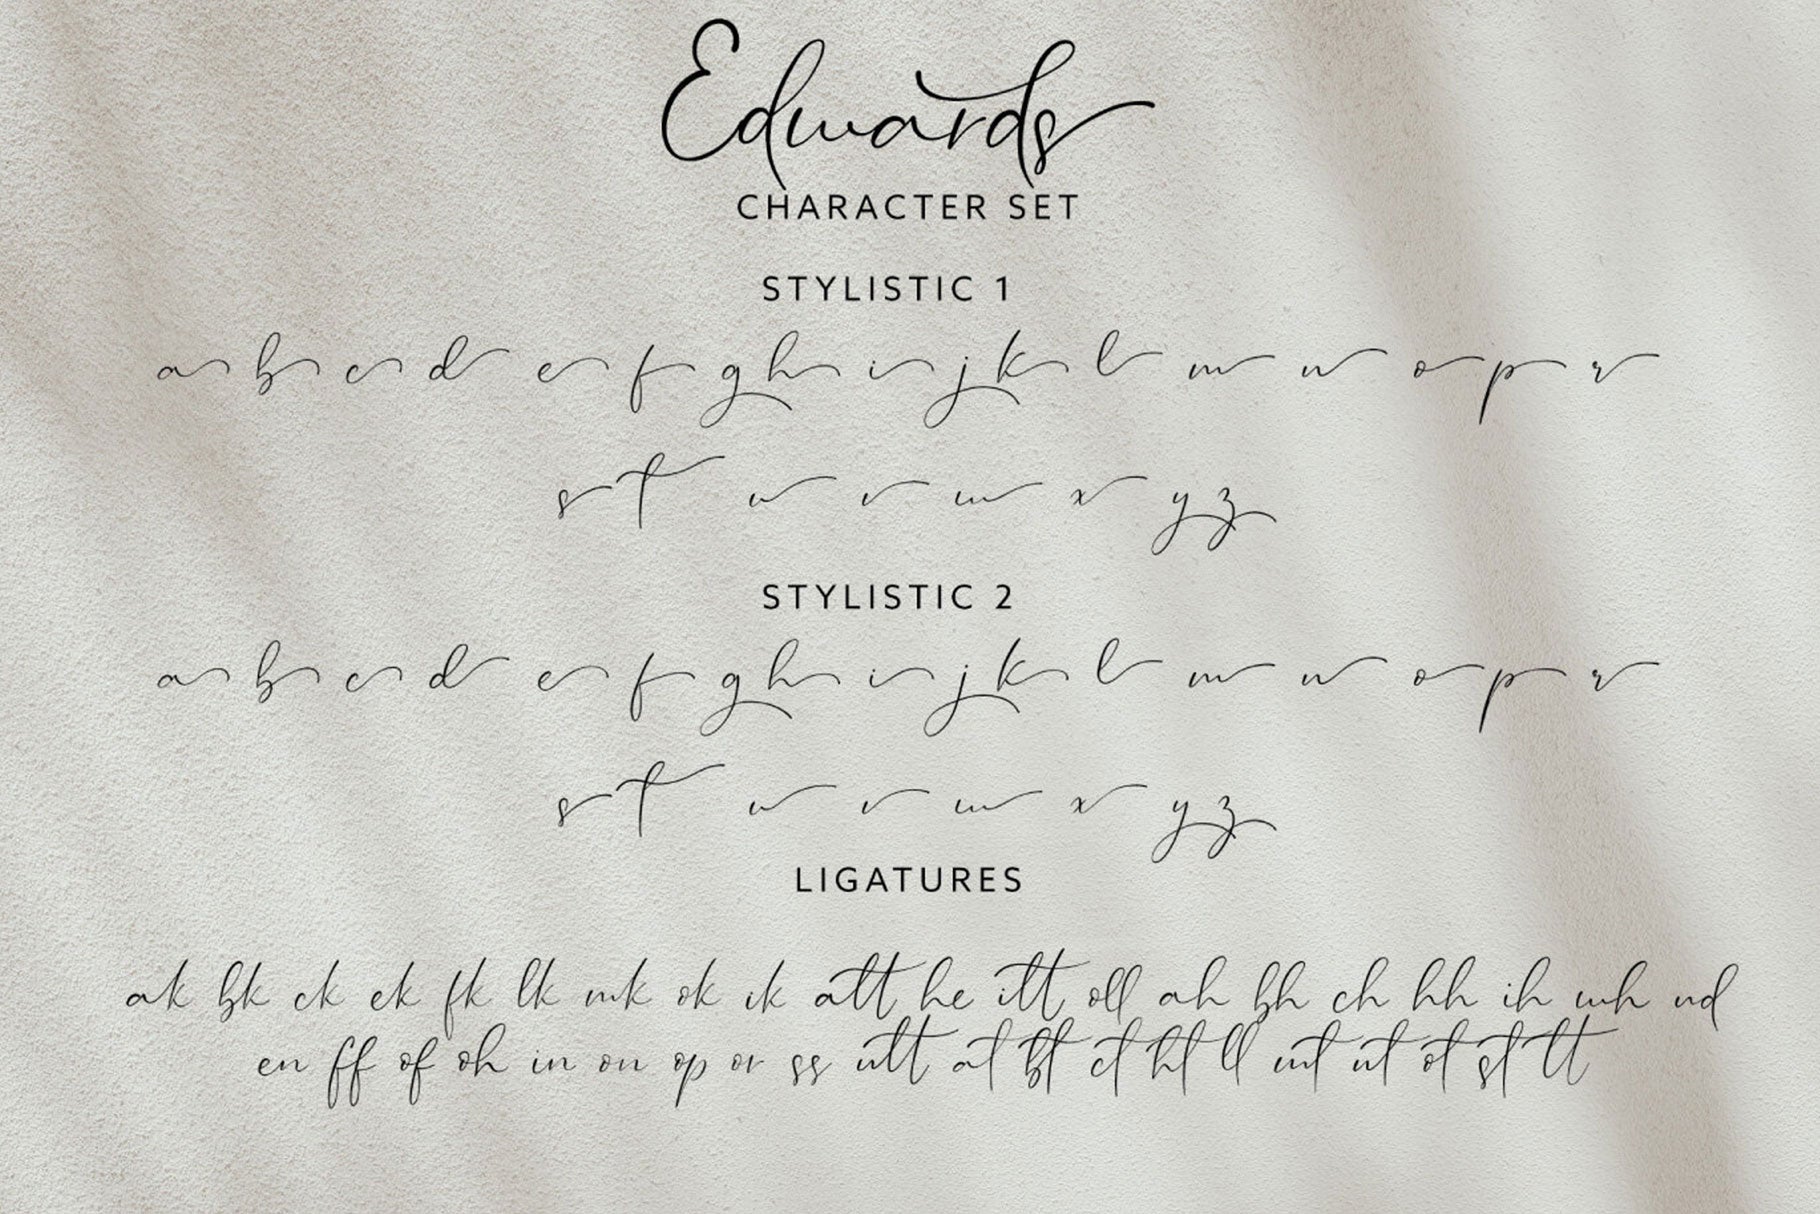 Edwards
CHARACTER SET
STYLISTIC 1
a b c d e f g h i j k l m n o p r
s t u v w x y z
STYLISTIC 2
a b c d e f g h i j k l m n o p r
s t u v w x y z
LIGATURES
ak bk ck ek fk lk mk ok ik att he itt oll ah bh ch hh ih mh nd
en ff of oh in on op or ss utt at bt ct ht ll mt nt ot st tt